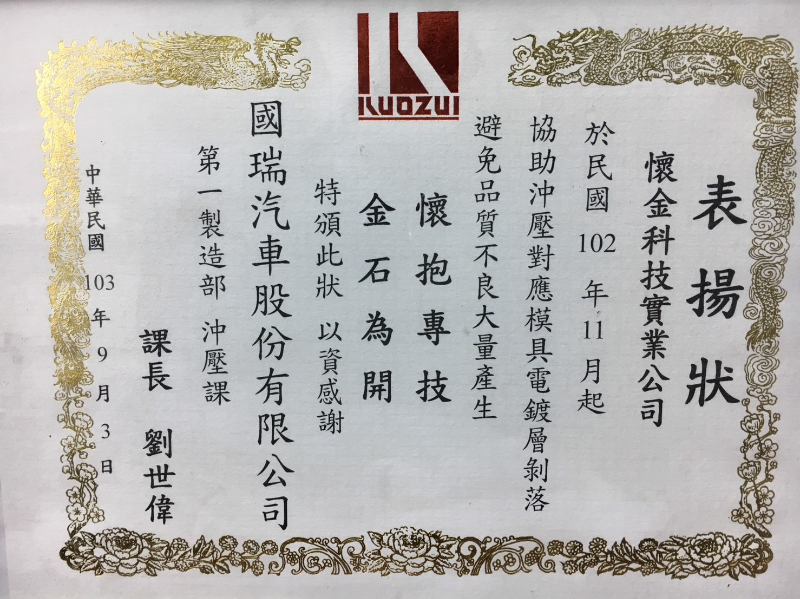 KUOZUI
表揚狀
懷金科技實業公司
於民國 102 年 11 月起
協助沖壓對應模具電鍍層剝落
避免品質不良大量產生
懷抱專技
金石為開
特頒此狀 以資感謝
國瑞汽車股份有限公司
第一製造部 沖壓課
課長 劉世偉
中華民國 103 年 9 月 3 日